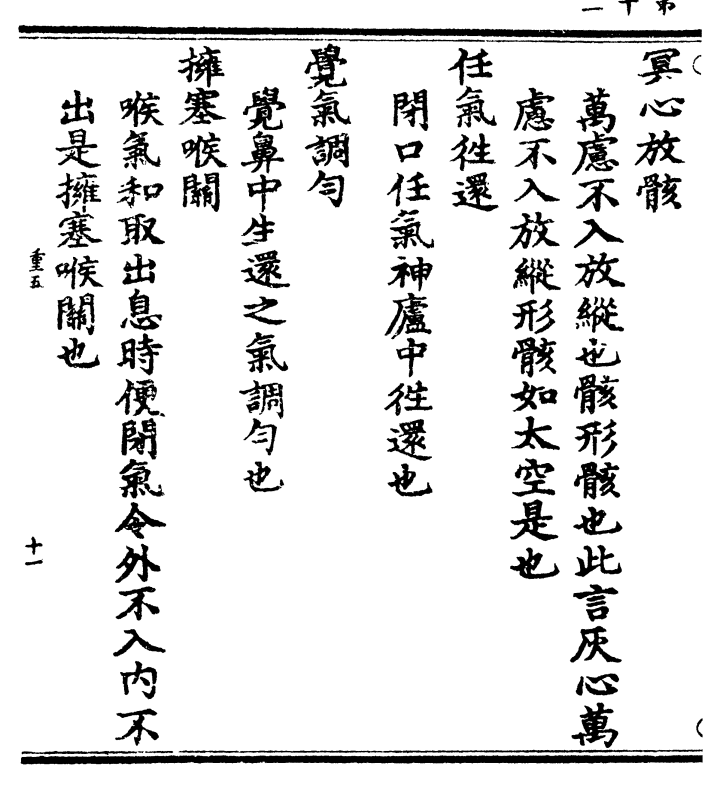 冥心放骸
萬慮不入放縱也骸形骸也此言灰心萬
慮不入放縱形骸如太空是也
任氣徃還
閉口任氣神廬中徃還也
覺氣調勻
覺鼻中生還之氣調勻也
擁塞喉關
喉氣和取出息時便閉氣令外不入內不
出是擁塞喉關也
重五
十一